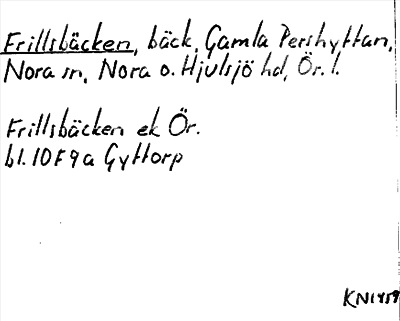 Frillsbäcken, bäck, Gamla Pershyttan,
Nora sn, Nora o. Hjulsjö hd, Ör. l.
Frillsbäcken ek Ör.
bl. 10F9a Gyttorp
KN1959